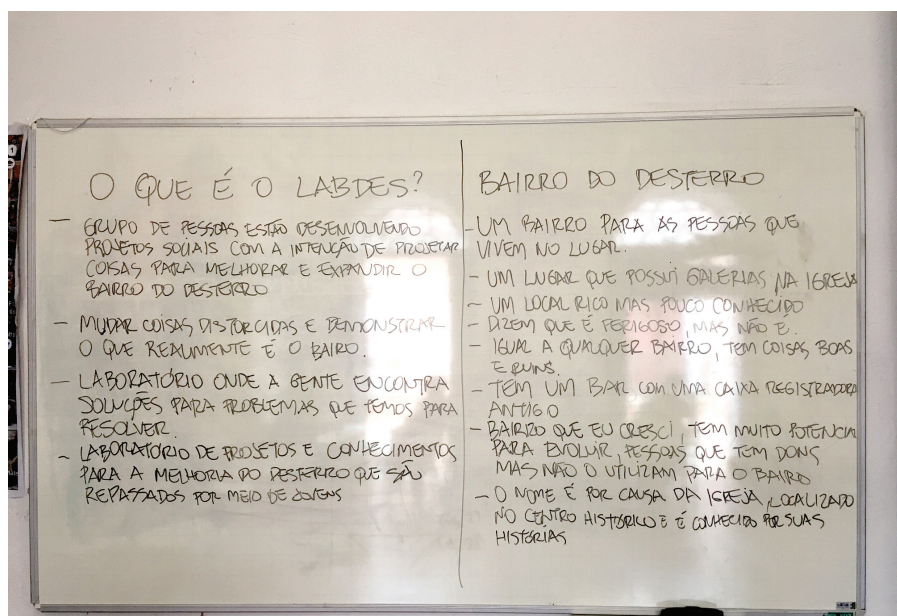 O QUE É O LABDES?
— GRUPO DE PESSOAS ESTÃO DESENVOLVENDO
PROJETOS SOCIAIS COM A INTENÇÃO DE PROJETAR
COISAS PARA MELHORAR E EXPANDIR O
BAIRRO DO DESTERRO
— MUDAR COISAS DISTORCIDAS E DEMONSTRAR
O QUE REALMENTE É O BAIRO.
— LABORATÓRIO ONDE A GENTE ENCONTRA
SOLUÇÕES PARA PROBLEMAS QUE TEMOS PARA
RESOLVER.
- LABORATÓRIO DE PROJETOS E CONHECIMENTOS
PARA A MELHORIA DO DESTERRO QUE SÃO
REPASSADOS POR MEIO DE JOVENS
BAIRRO DO DESTERRO
- UM BAIRRO PARA AS PESSOAS QUE
VIVEM NO LUGAR.
- UM LUGAR QUE POSSUI GALERIAS NA IGREJA
- UM LOCAL RICO MAS POUCO CONHECIDO
- DIZEM QUE É PERIGOSO, MAS NÃO E.
- IGUAL A QUALQUER BAIRRO, TEM COISAS BOAS
E RUINS.
- TEM UM BAR COM UMA CAIXA REGISTRADORA
ANTIGO
- BAIRRO QUE EU CRESCI, TEM MUITO POTENCIAL
PARA EVOLUIR, PESSOAS QUE TEM DONS
MAS NÃO O UTILIZAM PARA O BAIRO
- O NOME É POR CAUSA DA IGREJA, LOCALIZADO
NO CENTRO HISTÓRICO E É CONHECIDO POR SUAS
HISTÓRIAS